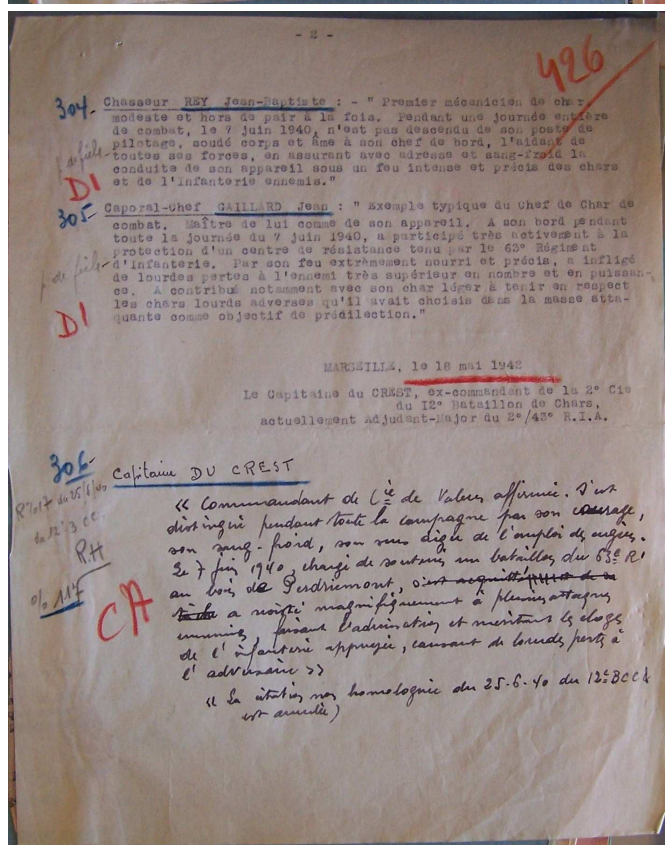 - 2 -
426
304- Chasseur REY Jean-Baptiste : - " Premier mécanicien de char
modeste et hors de pair à la fois. Pendant une journée entière
de combat, le 7 juin 1940, n'est pas descendu de son poste de
pilotage, soudé corps et âme à son chef de bord, l'aidant de
toutes ses forces, en assurant avec adresse et sang-froid la
conduite de son appareil sous un feu intense et précis des chars
et de l'Infanterie ennemis."
DI
305- Caporal-Chef GAILLARD Jean : " Exemple typique du Chef de Char de
combat. Maître de lui comme de son appareil. A son bord pendant
toute la journée du 7 juin 1940, a participé très activement à la
protection d'un centre de résistance tenu par le 63° Régiment
d'Infanterie. Par son feu extrêmement nourri et précis, a infligé
de lourdes pertes à l'ennemi très supérieur en nombre et en puissan-
ce. A contribué notamment avec son char léger à tenir en respect
les chars lourds adverses qu'il avait choisis dans la masse atta-
quante comme objectif de prédilection."
DI
MARSEILLE, le 18 mai 1942
Le Capitaine du CREST, ex-commandant de la 2° Cie
du I2° Bataillon de Chars,
actuellement Adjudant-Major du 2°/43° R.I.A.
306- Capitaine DU CREST
« Commandant de Cie de Valeur affirmée. S'est
distingué pendant toute la campagne par son courage,
son sang-froid, son sens aigu de l'emploi des engins.
Le 7 juin 1940, chargé de soutenir un bataillon du 63e RI
au bois de Perdriemont,
a résisté magnifiquement à plusieurs attaques
ennemies, faisant l'admiration et méritant les éloges
de l'infanterie appuyée, causant de lourdes pertes à
l'adversaire »
« La citation non homologuée du 25-6-40 du 12e BCC
est annulée)
R.H
117
CA